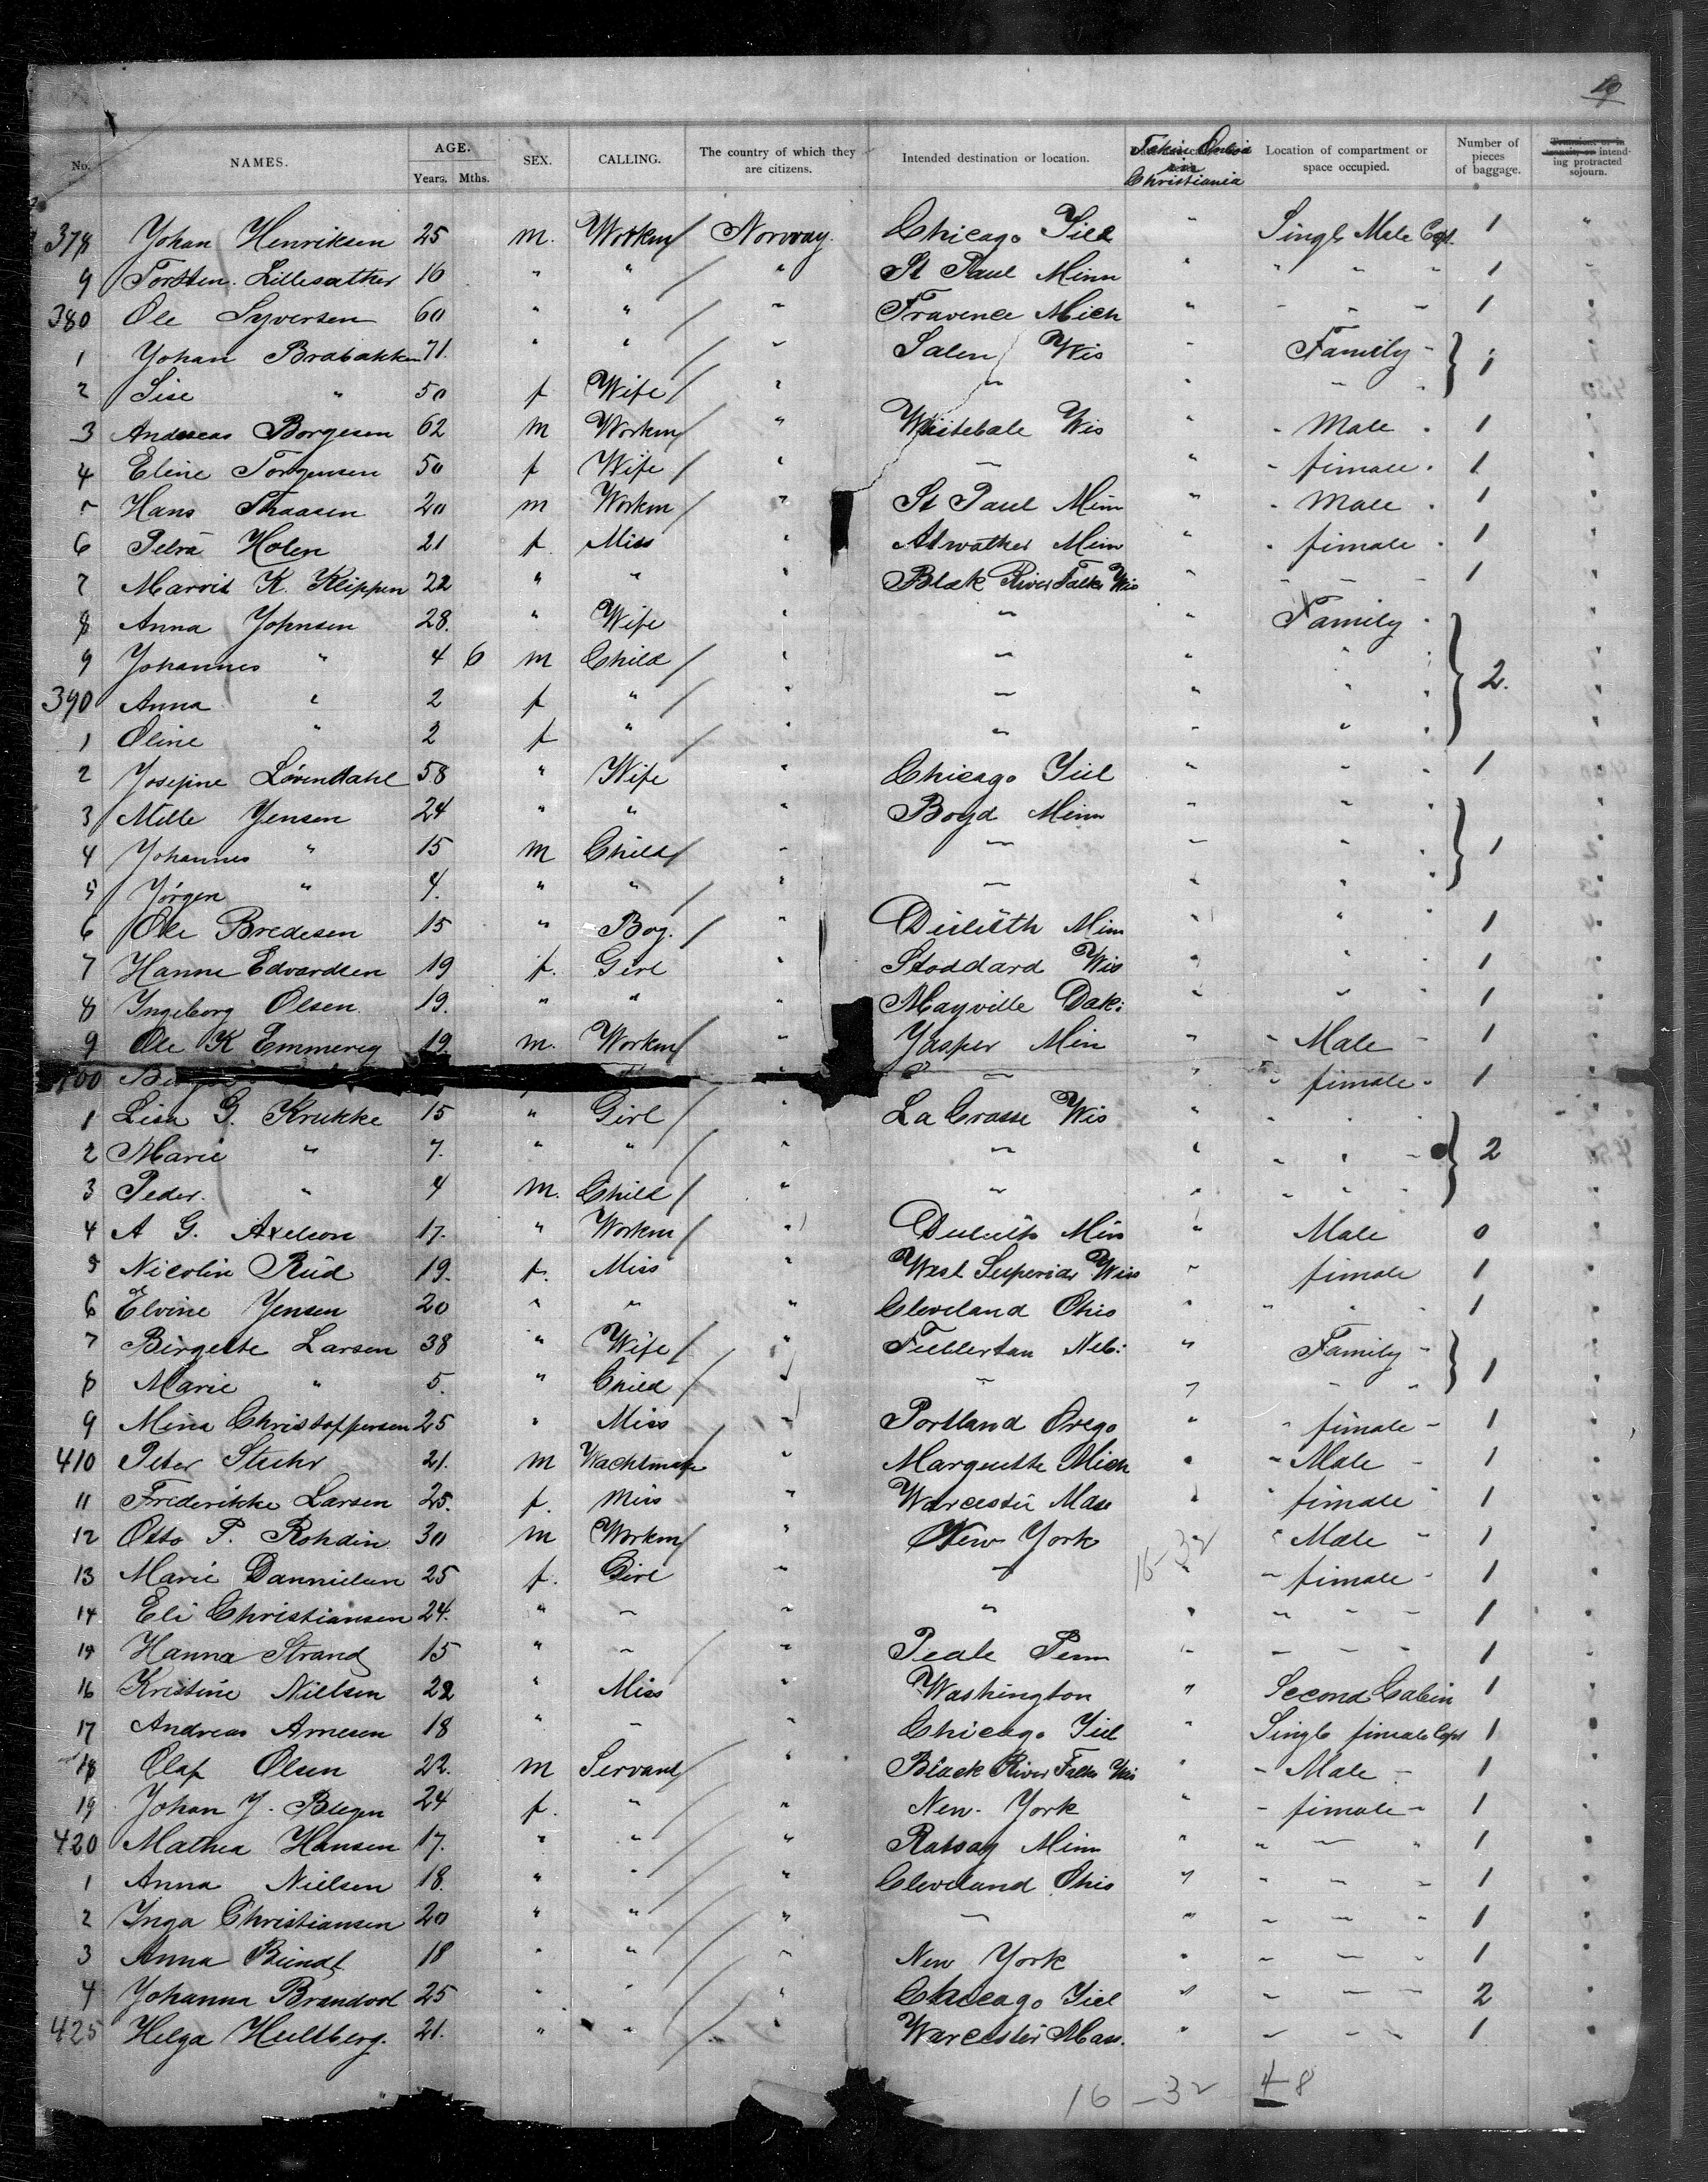 19
No. NAMES. AGE. Years. Mths. SEX. CALLING. The country of which they are citizens. Intended destination or location. Christiania Location of compartment or space occupied. Number of pieces of baggage. intending protracted sojourn.
378 Johan Henriksen 25 m. Workm / Norway. Chicago Ill " Single Male Cpt. 1 "
9 Torsten Lillesæther 16 " " / " St Paul Minn " " " " 1 "
380 Ole Syversen 60 " " / " Fravence Mich " " " " 1 "
1 Johan Brabakken 71. " " / " Salen Wis " Family " 1 "
2 Lise " 50 f Wife / " " " " " "
3 Andreas Borgesen 62 m Workm / " Whitebale Wis " " Male " 1 "
4 Eline Torgensen 50 f Wife / " " " " fimale " 1 "
5 Hans Thaasen 20 m Workm / " St Paul Minn " " Male " 1 "
6 Petra Holen 21 f. Miss " Atwather Minn " " fimale " 1 "
7 Marvit K. Klippen 22 " " " Black River Falls Wis " " " " 1 "
8 Anna Johnsen 28. " Wife " " " Family " "
9 Johannes " 4 6 m Child / " " " " " 2. "
390 Anna " 2 f " / " " " " " "
1 Oline " 2 f " / " " " " "
2 Josefine Lövendahl 58 " Wife " Chicago Ill " " " 1 "
3 Mille Jensen 24 " " " Boyd Minn " " " "
4 Johannes " 15 m Child / " " " " " 1 "
5 Jörgen " 4. " " / " " " " " "
6 Ole Bredesen 15 " Boy. / " Duluth Minn " " " 1 "
7 Hanne Edvardsen 19 f. Girl " Stoddard Wis " " " 1 "
8 Ingeborg Olsen 19. " " " Mayville Dak: " " " 1 "
9 Ole K Emmereg 19. m. Workm / " Jasper Min " " Male " 1 "
400 " " " " fimale " 1 "
1 Lisa G. Krukke 15 " Girl / " La Crosse Wis " " " "
2 Marie " 7. " " / " " " " " " 2 "
3 Peder. " 4 m. Child / " " " " " " "
4 A G. Axelson 17. " Workm / " Duluth Min " Male 0 "
5 Nicolin Rud 19. f. Miss " West Superior Wis " fimale 1 "
6 Elvine Jensen 20 " " " Cleveland Ohio " " " " 1 "
7 Birgette Larsen 38 " Wife / " Fullertan Neb: " Family " 1 "
8 Marie " 5. " Child / " " " " " "
9 Mina Christoffersen 25 " Miss " Portland Orego " " fimale " 1 "
410 Peter Stuhr 21. m Wachtmak " Marquette Mich " " Male " 1 "
11 Frederikke Larsen 25. f. Miss " Worcester Mass " " fimale " 1 "
12 Otto P. Rohdin 30 m Workm / " New York 16-32 " Male " 1 "
13 Marie Dannielsen 25 f. Girl " " " " fimale " 1 "
14 Eli Christiansen 24. " " " " " " " " 1 "
15 Hanna Strand 15 " " / " Peale Penn " " " " 1 "
16 Kristine Nielsen 22 " Miss " Washington " Second Cabin 1 "
17 Andreas Arnesen 18 " " " Chicago Ill " Single fimale Cpt 1 "
18 Olaf Olsen 22. m Servant / " Black River Falls Wis " " Male " 1 "
19 Johan J. Blegen 24 f. " / " New York " " fimale " 1 "
420 Mathea Hansen 17. " " / " Ratsay Minn " " " " 1 "
1 Anna Nielsen 18. " " / " Cleveland Ohio " " " " 1 "
2 Inga Christiansen 20 " " / " " " " " " 1 "
3 Anna Bundt 18 " " / " New York " " " " 1 "
4 Johanna Brandvol 25 " " / " Chicago Ill " " " " 2 "
425 Helga Hultberg. 21. " " / " Worcester Mass. " " " " 1 "
16 - 32 4-8